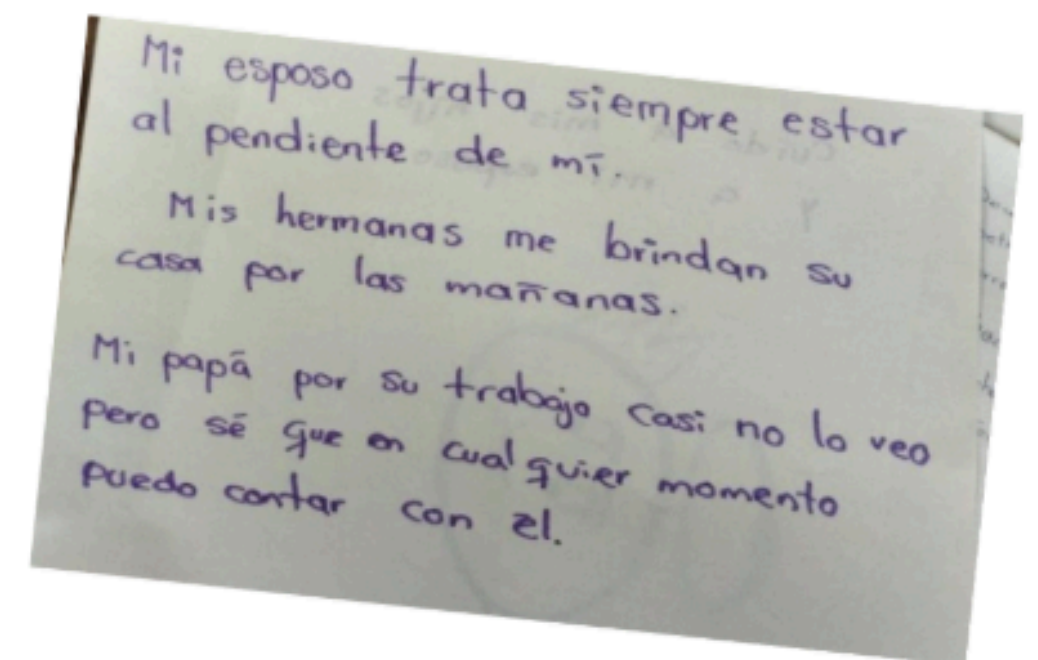 Mi esposo trata siempre estar
al pendiente de mí.
Mis hermanas me brindan su
casa por las mañanas.
Mi papá por su trabajo casi no lo veo
pero sé que en cualquier momento
puedo contar con él.